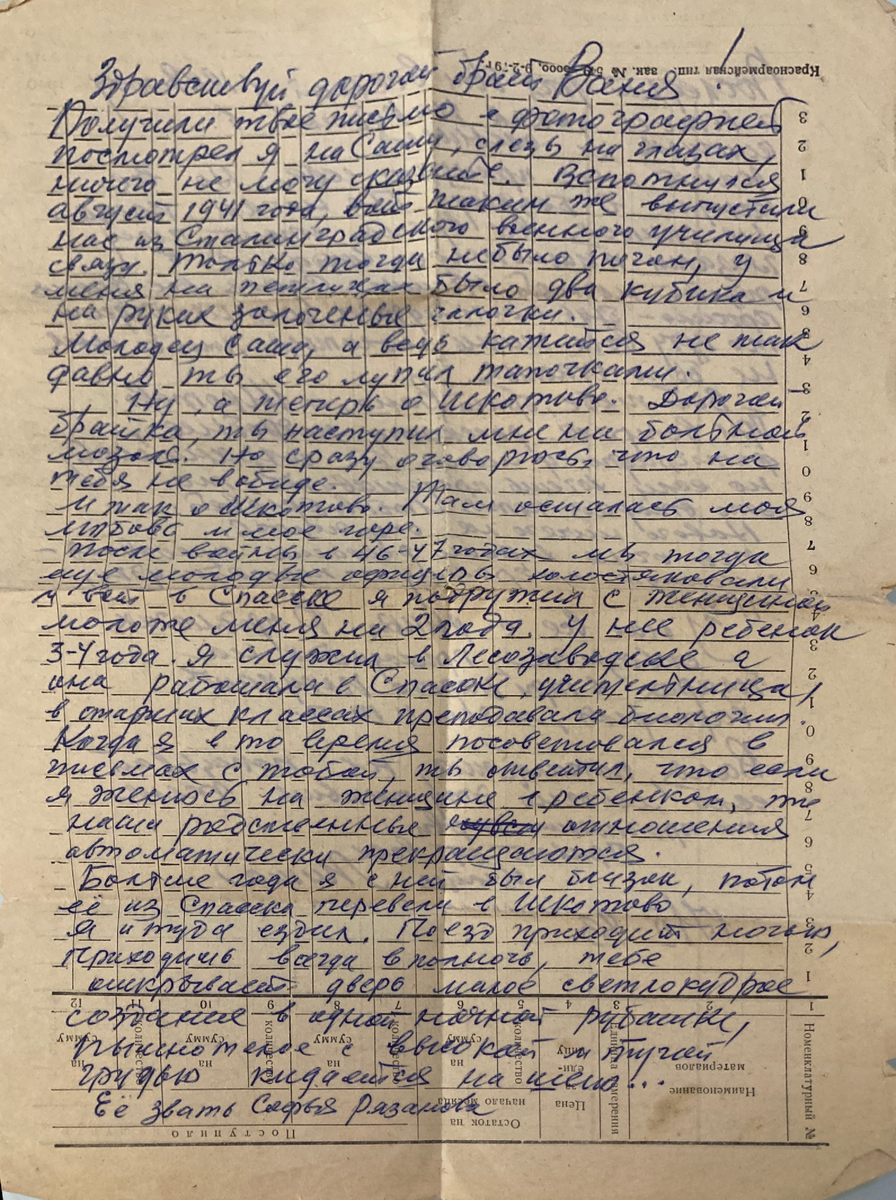 Здравствуй дорогой брат Ваня!
Получили твое письмо с фотографией
посмотрел я на Сашу, слезы на глазах,
ничего не могу сказать. Вспомнился
август 1941 года, вот таким же выпустили
нас из Сталинградского военного училища
связи. Только тогда небыло погон, у
меня на петлицах было два кубика и
на руках золоченые галочки.
Молодец Саша, а ведь кажится не так
давно ты его лупил тапочками.
Ну, а теперь о Шкотово. Дорогой
братка, ты наступил мне на больной
мозоль. Но сразу оговорюсь, что на
тебя не в обиде.
И так о Шкотово. Там осталась моя
любовь и мое горе.
После войны в 46-47 годах мы тогда
еще молодые офицеры холостяковали
и вот в Спасске я подружил с женщиной
моложе меня на 2 года. У нее ребенок
3-4 года. Я служил в Лесозаводске а
она работала в Спасске, учительница,
в старших классах преподавала биологию.
Когда я в то время посоветовался в
письмах с тобой, ты ответил, что если
я женюсь на женщине с ребенком, то
наши родственные отношения
автоматически прекращаются.
Больше года я с ней был близок, потом
её из Спасска перевели в Шкотово
Я и туда ездил. Поезд приходит ночью,
Приходишь всегда в полночь, тебе
открывает дверь малое светлокудрое
создание в одной ночной рубашке,
пышнотелое с высокой и тугой
грудью кидается на шею...
Её звать Софья Рязанова
Красноармейская тип. зак. № 9-2-79 г.
Номенклатурный №
Наименование материалов
Единица измерения
Цена
Остаток на начало месяца
Поступило
количество
на сумму
количество
на сумму
количество
на сумму
1 2 3 4 5 6 7 8 9 10 11 12